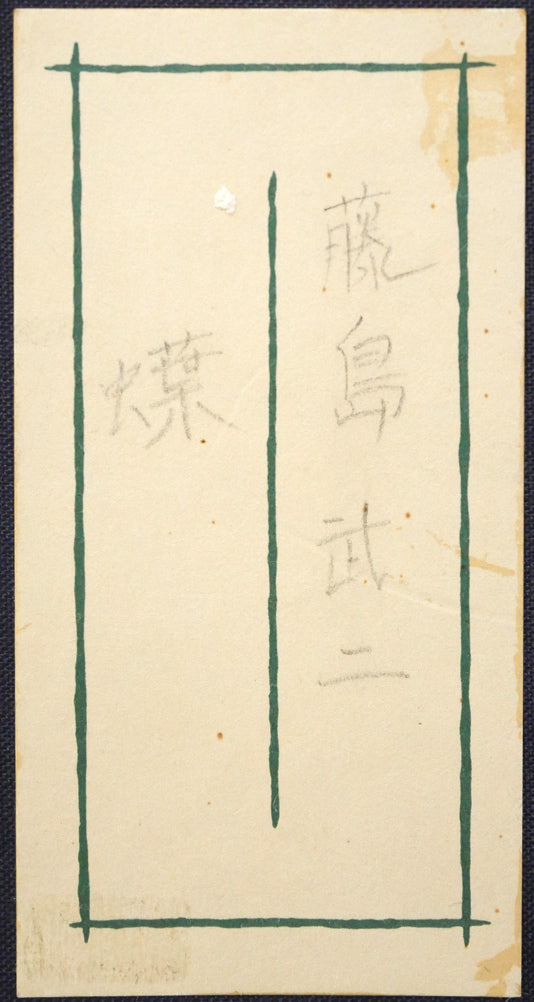 藤島武二
蝶